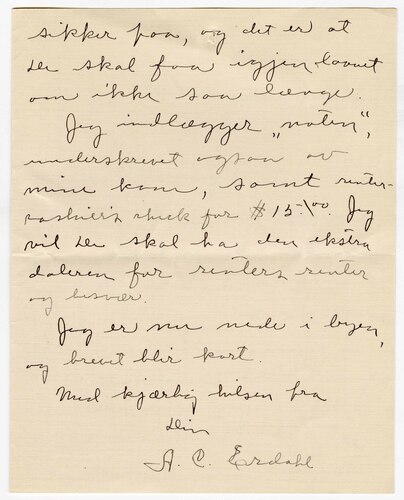 sikker paa, og det er at
De skal faa igjen laanet
om ikke saa længe.
Jeg indlægger „noten",
underskrevet ogsaa av
mine kone, samt renter-
cashier's check for $15.⁄00. Jeg
vil De skal ha den ekstra
daleren for renters renter
og besvær.
Jeg er nu nede i byen,
og brevet blir kort.
Med kjærlig hilsen fra
Din
A. C. Erdahl